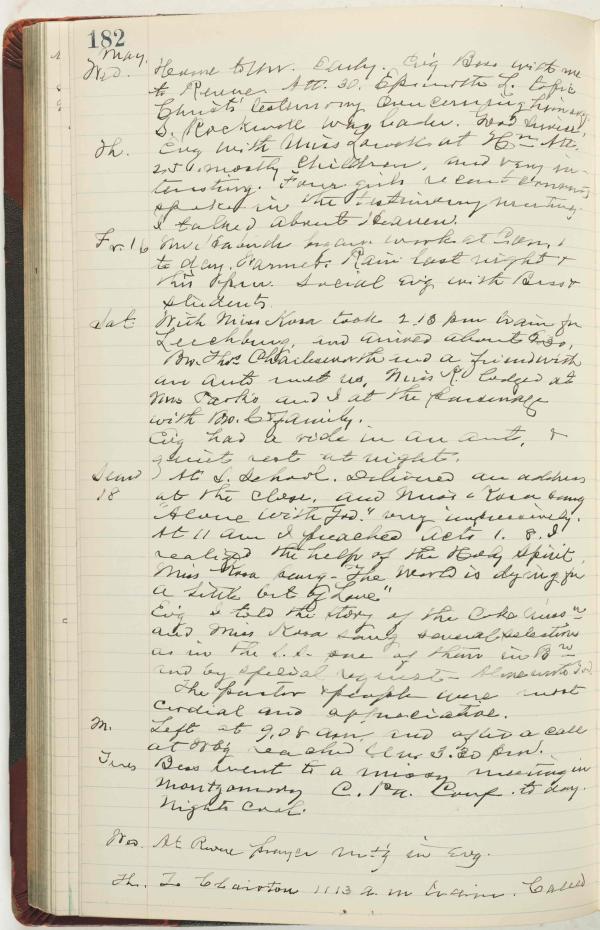 182
May.
Wed. Home to Unv. Early. Ev'g Bess with me
to Revere Att. 30. Epworth L. topic
Christ's testimony concerning himself.
S. Rockwell was leader. Good service.
Th. Evg with Miss at Att.
25. mostly children, and very in-
teresting. Four girls recent converts
spoke in the testimony meeting.
I talked about Heaven.
Fr. 16 began work at
to day. Farmer. Rain last night &
this p.m. Social Ev'g with Bess &
students
Sat. With Miss Kosa took 2.13 pm train for
Leechburg, and arrived about
Bro. Thos. Charlesworth and a friend with
an auto met us, Miss K. lodged at
Mrs Parks and I at the parsonage
with Bro. C & family.
Evg had a ride in an auto, &
quiet rest at night.
Sund At S. School. Delivered an address
18 at the close, and Miss Kosa sang
"Alone with God." very impressively.
At 11 am I preached Acts 1. 8. I
realized the help of the Holy Spirit,
Miss Kosa sang - "The World is dying for
a little bit of Love"
Evg I told the story of the Coke miss'n
and Miss Kosa sang several selections
as in the S.S. one of them in
and by special request - Alone with God.
The pastor & people were most
cordial and appreciative.
M. Left at 9.08 am, and after a call
at reached Unv. 3.30 pm.
Tues Bess went to a missy meeting in
Montgomery C. Pa. Conf. to day.
Nights cool.
Wed. At Revere prayer mt'g in Evg.
Th. To Clairton 11 13 a.m train. Called